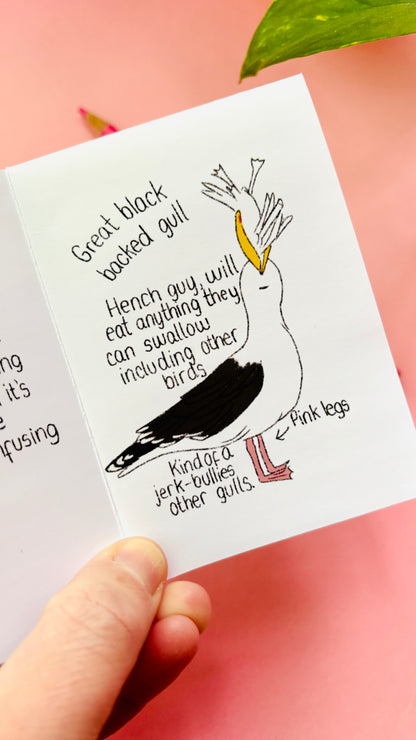 Great black
backed gull
Hench guy, will
eat anything they
can swallow
including other
birds
Pink legs
Kind of a
jerk-bullies
other gulls.
it's